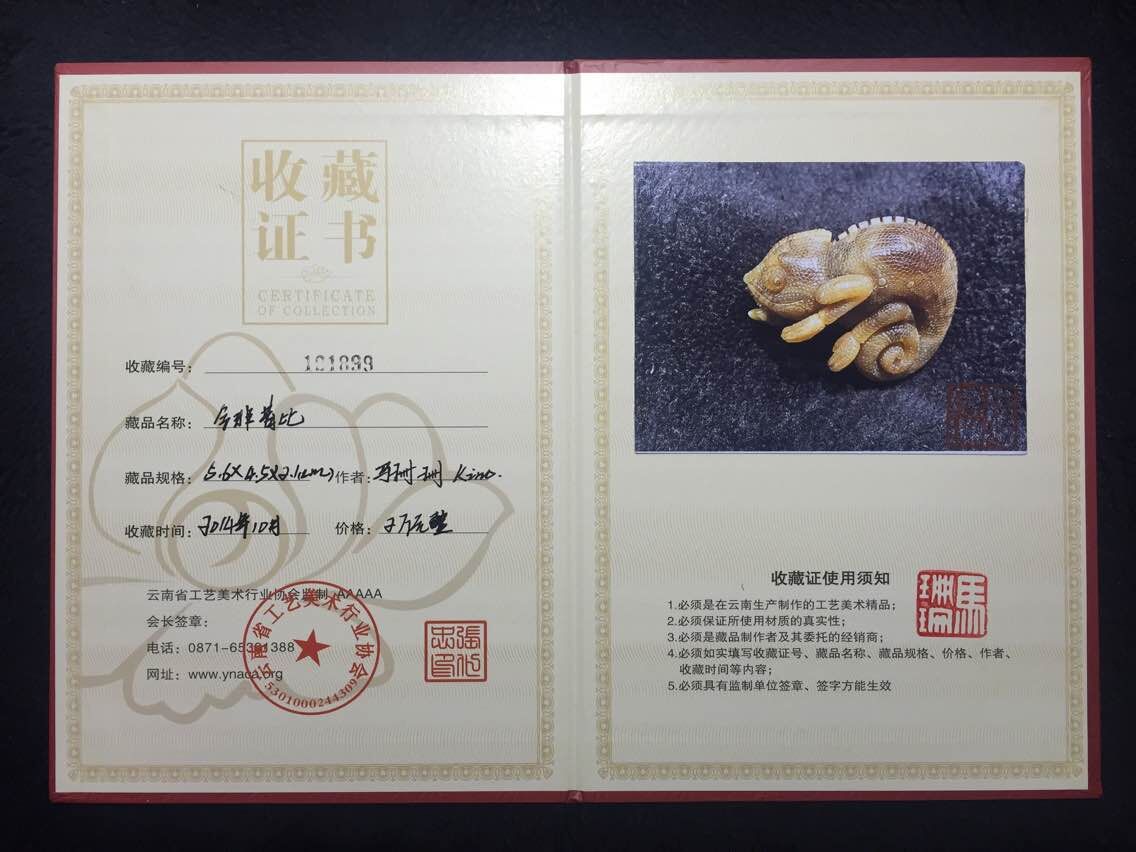 收藏
证书
CERTIFICATE
OF COLLECTION
收藏编号：
藏品名称：
藏品规格：5.6×4.5×2.1(cm) 作者：马珊珊 Kino.
收藏时间：2014年10月 价格：2万元整
云南省工艺美术行业协会监制 AAAAA
会长签章：
电话：0871-65391388
网址：www.ynaca.org
云南省工艺美术行业协会
5301000244309
收藏证使用须知
1.必须是在云南生产制作的工艺美术精品；
2.必须保证所使用材质的真实性；
3.必须是藏品制作者及其委托的经销商；
4.必须如实填写收藏证号、藏品名称、藏品规格、价格、作者、
收藏时间等内容；
5.必须具有监制单位签章、签字方能生效